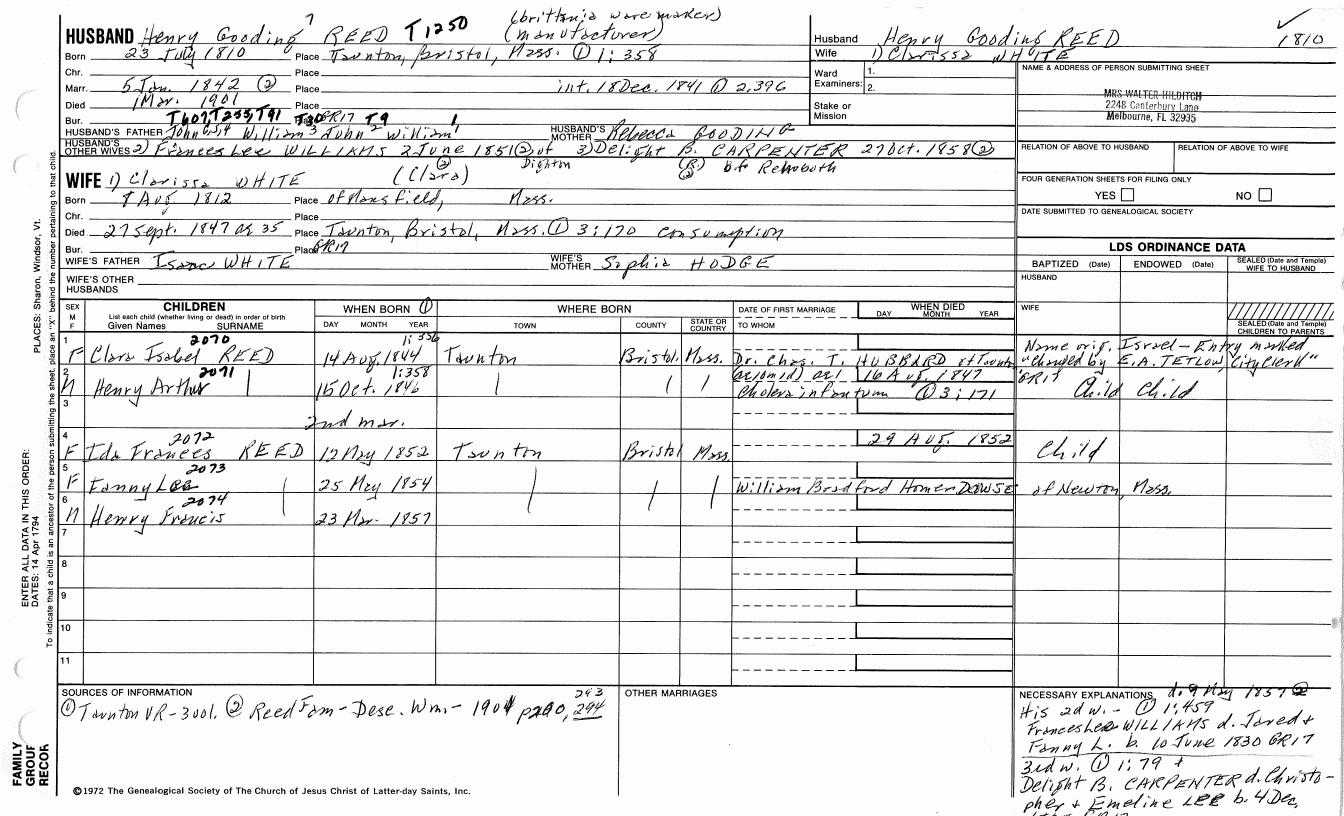 (brittania ware maker)
HUSBAND Henry Gooding 7 REED T1250 (manufacturer)
Born 23 July 1810 Place Taunton, Bristol, Mass. ① 1:358
Chr. Place
Marr. 5 Jan. 1842 ② Place int. 18 Dec. 1841 ① 2,396
Died 1 Mar. 1901 Place
Bur. T607, T255, T91 GR17 T9 1
HUSBAND'S FATHER John 6,5,4 William 3 John 2 William 1 HUSBAND'S MOTHER Rebecca GOODING
HUSBAND'S OTHER WIVES 2) Frances Lee WILLIAMS 2 June 1851 ② of Dighton 3) Delight B. CARPENTER 27 Oct. 1858 ② (R.) ② of Rehoboth
WIFE 1) Clarissa WHITE (Clara) ②
Born 8 Aug 1812 Place of Mansfield, Mass.
Chr. Place
Died 27 Sept. 1847 ae 35 Place Taunton, Bristol, Mass. ① 3:170 consumption
Bur. Place GR17
WIFE'S FATHER Isaac WHITE WIFE'S MOTHER Sophia HODGE
WIFE'S OTHER HUSBANDS
Husband Henry Gooding REED 1810
Wife 1) Clarissa WHITE
Ward Examiners: 1. 2.
Stake or Mission
NAME & ADDRESS OF PERSON SUBMITTING SHEET
MRS WALTER HILDITCH
2248 Canterbury Lane
Melbourne, FL 32935
RELATION OF ABOVE TO HUSBAND RELATION OF ABOVE TO WIFE
FOUR GENERATION SHEETS FOR FILING ONLY
YES NO
DATE SUBMITTED TO GENEALOGICAL SOCIETY
LDS ORDINANCE DATA
BAPTIZED (Date) ENDOWED (Date) SEALED (Date and Temple) WIFE TO HUSBAND
HUSBAND
WIFE
SEALED (Date and Temple) CHILDREN TO PARENTS
SEX M F CHILDREN WHEN BORN ① WHERE BORN DATE OF FIRST MARRIAGE WHEN DIED
List each child (whether living or dead) in order of birth
Given Names SURNAME DAY MONTH YEAR TOWN COUNTY STATE OR COUNTRY TO WHOM DAY MONTH YEAR
1 2070 1:356
F Clara Isabel REED 14 Aug. 1844 Taunton Bristol. Mass. Dr. Chas. T. HUBBARD of Taunton Name orig. Israel - Entry marked
"changed by E.A. TETLOW, City Clerk"
2 2071 1:358 16 Aug. 1847 GR17
M Henry Arthur 15 Oct. 1846 cholera infantum ① 3:171 Child Child
3
2nd mar.
4 2072 29 Aug. 1852
F Ida Frances REED 12 May 1852 Taunton Bristol Mass. Child
5 2073
F Fanny Lee 25 May 1854 William Bradford Homer DOWSE of Newton, Mass.
6 2074
M Henry Francis 23 Mar. 1857
7
8
9
10
11
SOURCES OF INFORMATION
① Taunton VR - 3 vol. ② Reed Fam - Desc. Wm. - 1901 p290, 293 294
OTHER MARRIAGES
NECESSARY EXPLANATIONS d. 9 May 1857 ②
His 2d w. - ① 1:459
Frances Lee WILLIAMS d. Jared +
Fanny L. b. 10 June 1830 GR17
3rd w. ① 1:79 +
Delight B. CARPENTER d. Christo-
pher + Emeline LEE b. 4 Dec,
©1972 The Genealogical Society of The Church of Jesus Christ of Latter-day Saints, Inc.
PLACES: Sharon, Windsor, Vt.
ENTER ALL DATA IN THIS ORDER:
DATES: 14 Apr 1794
To indicate that a child is an ancestor of the person submitting the sheet, place an "X" behind the number pertaining to that child.
FAMILY
GROUP
RECOR